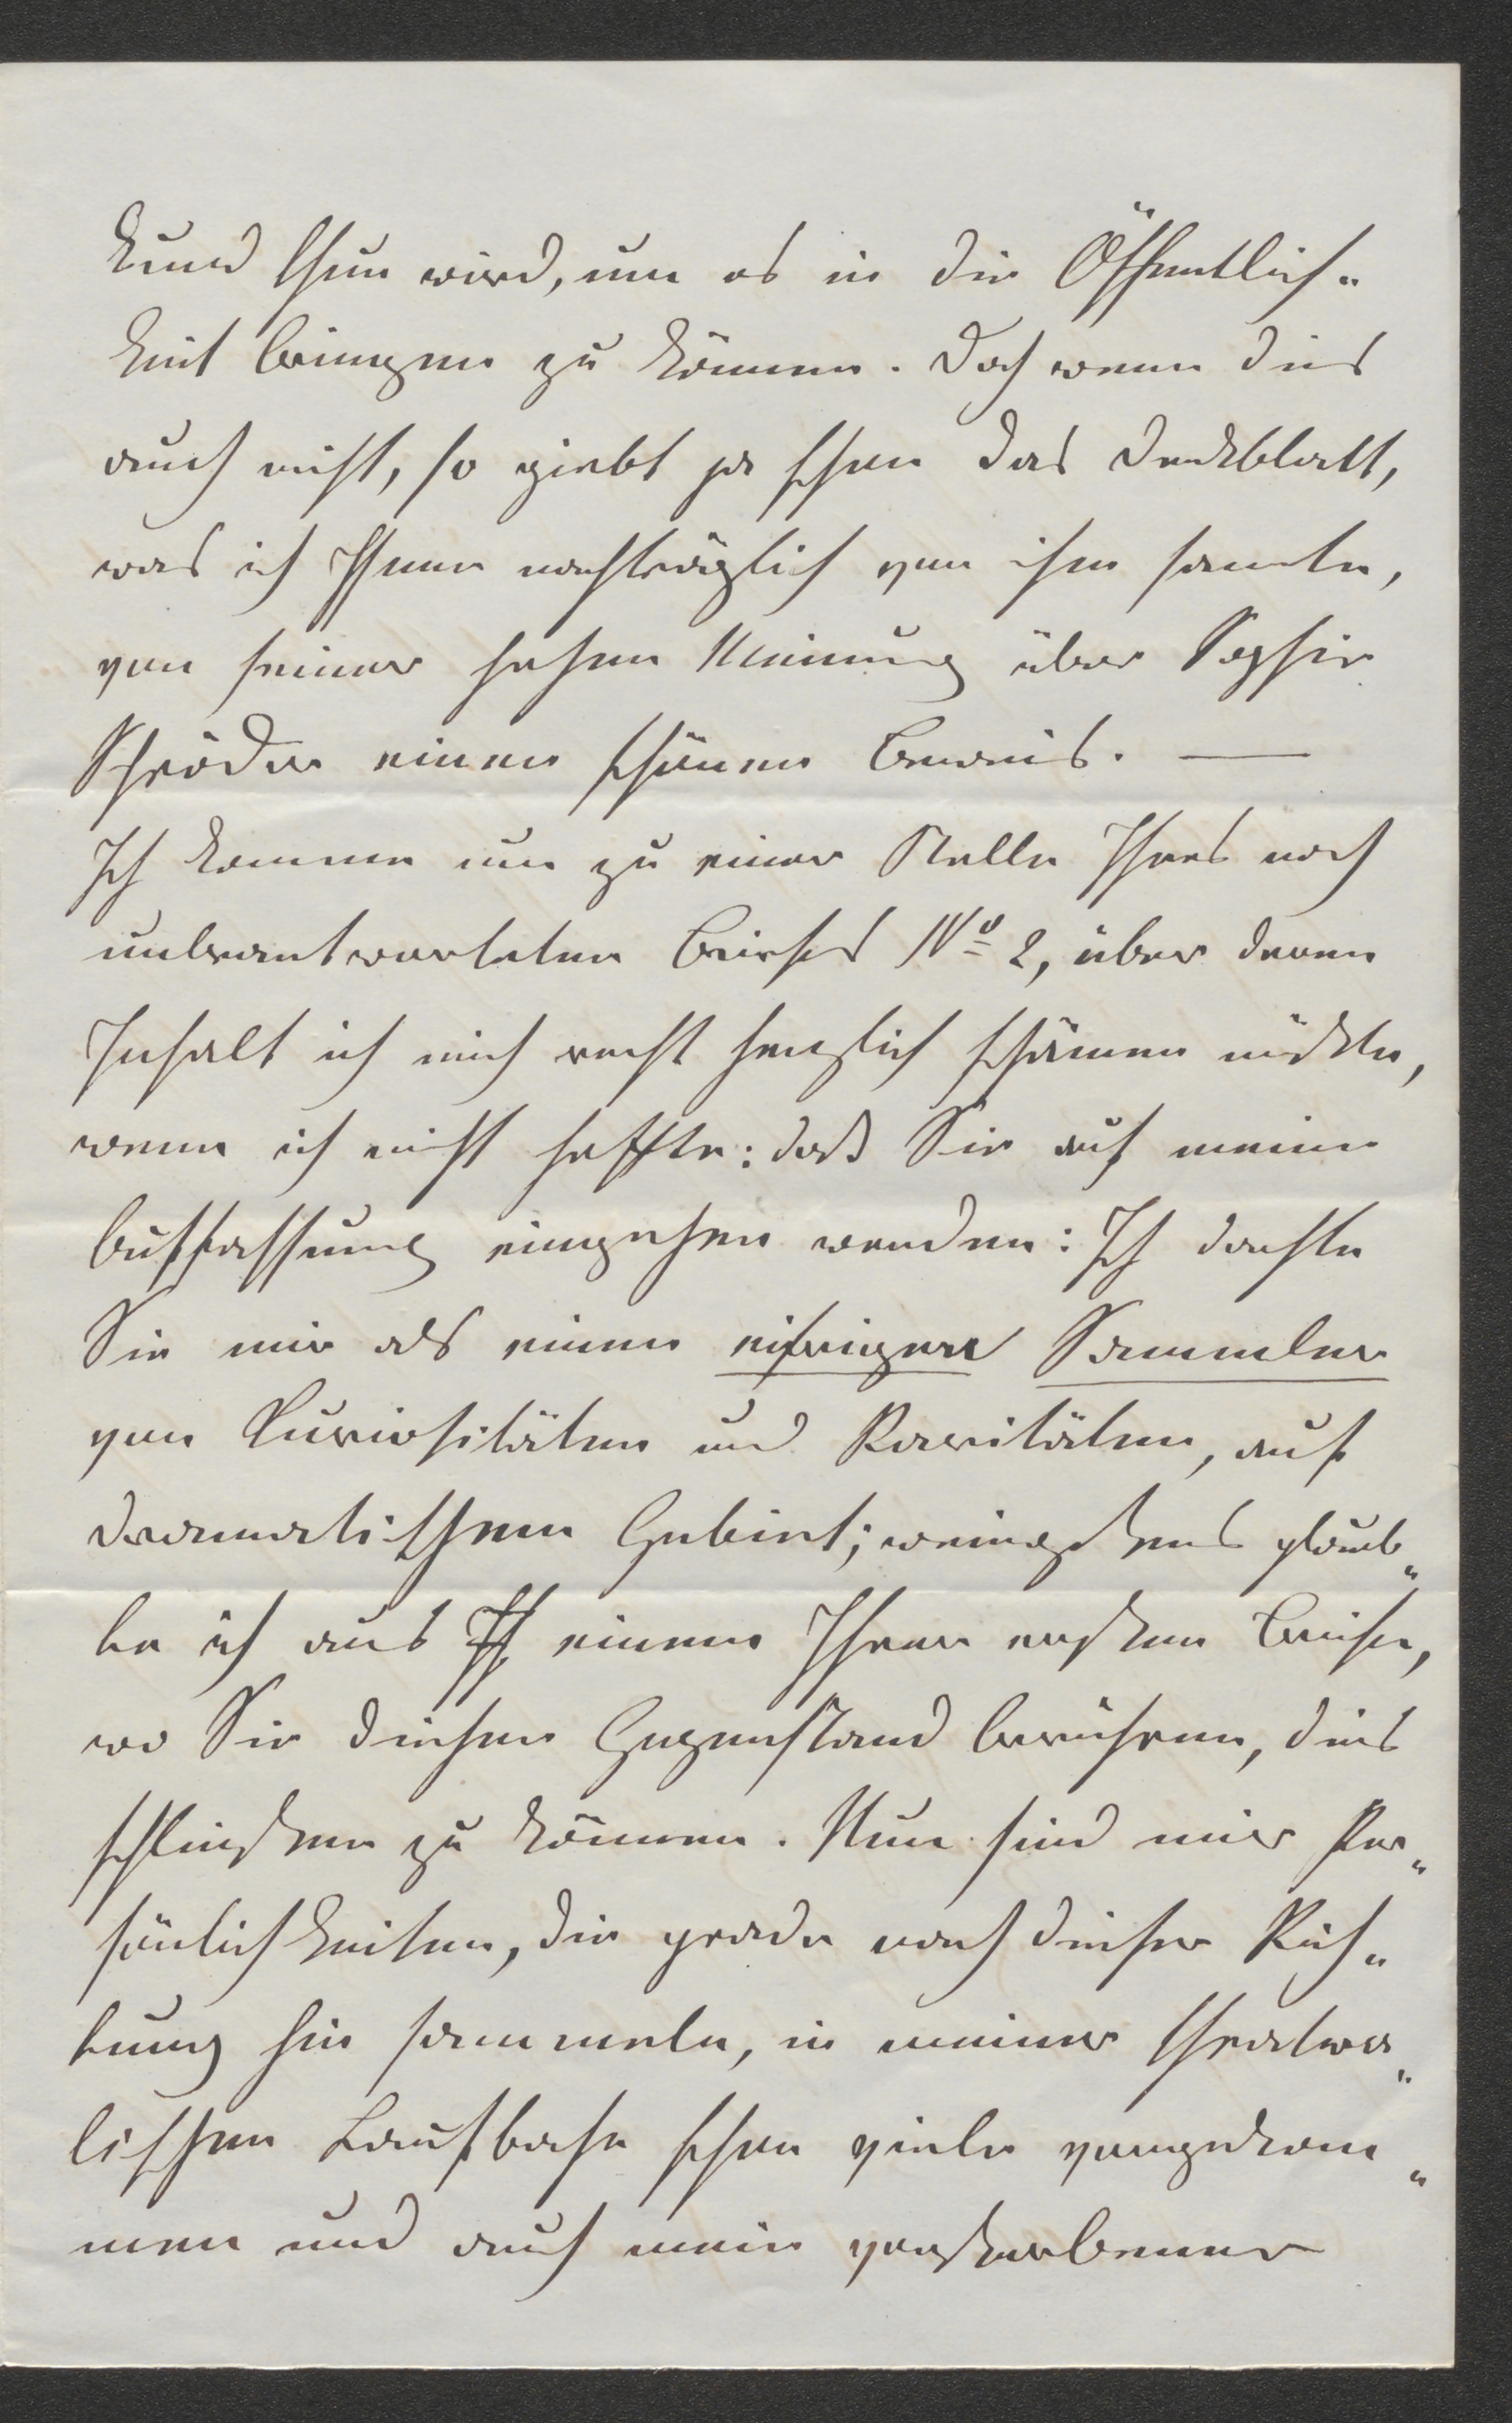 kund thun wird, um es in die Öffentlich„
keit bringen zu können. Doch wenn dies
auch nicht, so giebt ja schon das Denkblatt,
was ich Ihnen nachträglich von ihm sandte,
von seiner hohen Meinung über Sophie
Schröder einen schönen Beweis. —
Ich komme nun zu einer Stelle Ihres noch
unbeantworteten Briefes No 2, über deren
Inhalt ich mich recht herzlich schämen müßte,
wenn ich nicht hoffte: daß Sie auf meine
Auffassung eingehen werden: Ich dachte
Sie mir als einen eifrigen Sammler
von Curiositäten und Raritäten, auf
dramatischem Gebiet; wenigstens glaub„
te ich aus Ih einem Ihrer ersten Briefe,
wo Sie diesen Gegenstand berühren, dies
schließen zu können. Nun sind mir Per„
sönlichkeiten, die grade nach dieser Rich„
tung hin sammeln, in meiner theatra„
lischen Laufbahn schon viele vorgekom„
men und auch mein verstorbener